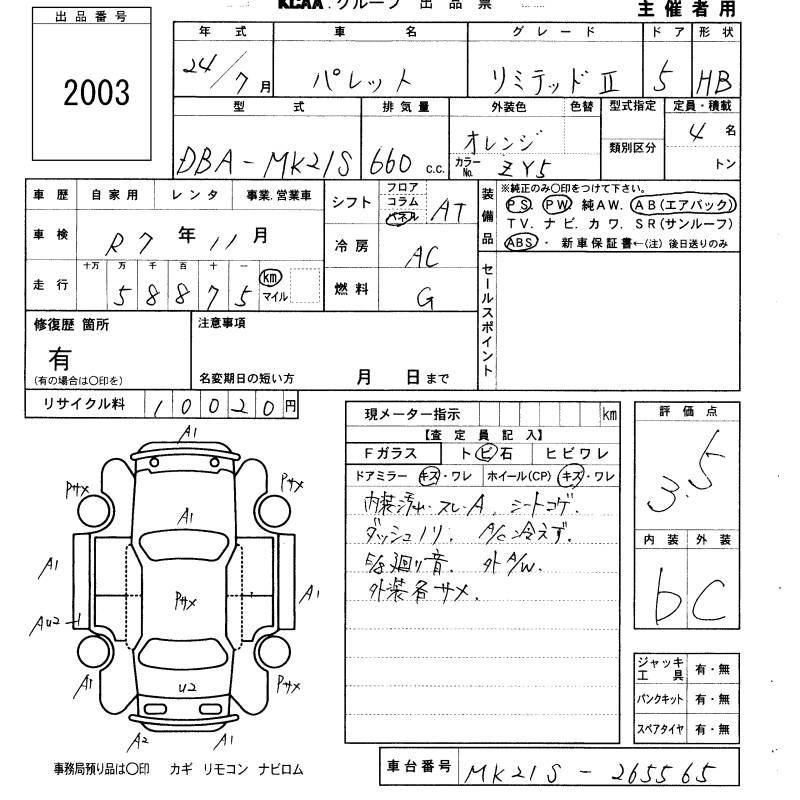 KCAA グループ 出品票
主催者用
出品番号
2003
年式 車名 グレード ドア 形状
24/7月 パレット リミテッドⅡ 5 HB
型式 排気量 外装色 色替 型式指定 定員・積載
DBA-MK21S 660 c.c. オレンジ 類別区分 4名
カラーNo. ZY5 トン
車歴 自家用 レンタ 事業.営業車
車検 R7年11月
走行 十万 万 千 百 十 一
58875 km マイル
シフト フロア コラム パネル AT
冷房 AC
燃料 G
装備品
※純正のみ〇印をつけて下さい。
PS. PW. 純AW. AB(エアバック)
TV. ナビ. カワ. SR(サンルーフ)
ABS ・ 新車保証書←(注) 後日送りのみ
セールスポイント
修復歴 箇所
有
(有の場合は〇印を)
注意事項
名変期日の短い方 月 日まで
リサイクル料 10020円
現メーター指示 km
【査定員記入】
Fガラス トビ石 ヒビワレ
ドアミラー キズ・ワレ ホイール(CP) キズ・ワレ
内装汚れ・スレA. シートコゲ.
ダッシュノリ. A/C冷えず.
E/g廻り音. 外A/W.
外装各サメ.
評価点
3.5
内装 外装
b C
ジャッキ工具 有・無
パンクキット 有・無
スペアタイヤ 有・無
A1
Pサメ Pサメ
A1
A1 A1
Pサメ
AU2
A1 U2 Pサメ
A2 A1
事務局預り品は〇印 カギ リモコン ナビロム
車台番号 MK21S-265565